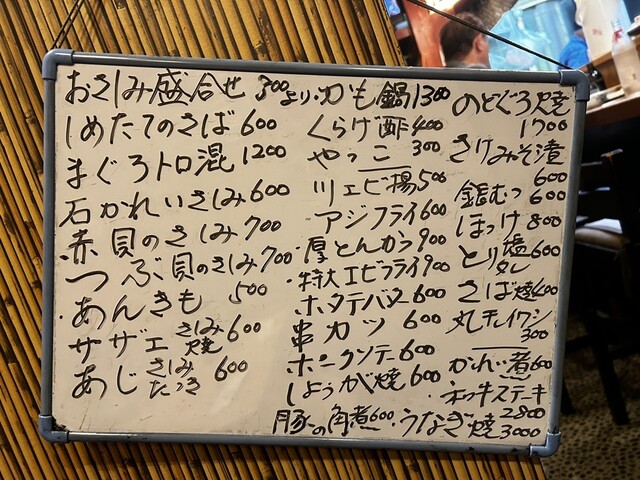 おさしみ盛合せ 300より
しめたてのさば 600
まぐろトロ混 1200
石かれいさしみ 600
赤貝のさしみ 700
つぶ貝のさしみ 700
あんきも 500
サザエ さしみ 焼 600
あじ さしみ たたき 600
・かも鍋 1300
くらげ酢 400
やっこ 300
ツエビ揚 500
アジフライ 600
厚とんかつ 900
・特大エビフライ 900
ホタテバタ 600
串カツ 600
ポークソテー 600
しょうが焼 600
豚の角煮 600
のどぐろ焼
1700
さけみそ漬
600
銀むつ 600
ほっけ 800
とり 塩 タレ 600
さば焼 400
丸干イワシ
300
かれい煮 600
ステーキ
2800
・うなぎ焼 3000